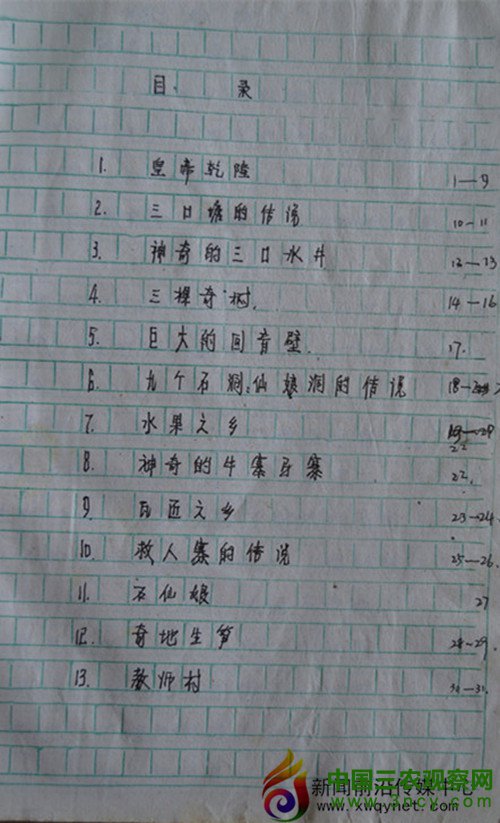 目 录
1. 皇帝乾隆 1—9
2. 三口塘的传说 10—11
3. 神奇的三口水井 12—13
4. 三棵奇树. 14—16
5. 巨大的回音壁. 17.
6. 九个石洞:仙娘洞的传说 18—
7. 水果之乡
22
8. 神奇的牛寨马寨 22.
9 瓦匠之乡 23—24
10. 救人寨的传说 25—26.
11. 石仙娘 27
12. 奇地生笋 28—29.
13. 教师村 30—31.
新闻前沿传媒中心
www.xwqynet.com
中国三农观察网
www.3ncy.com